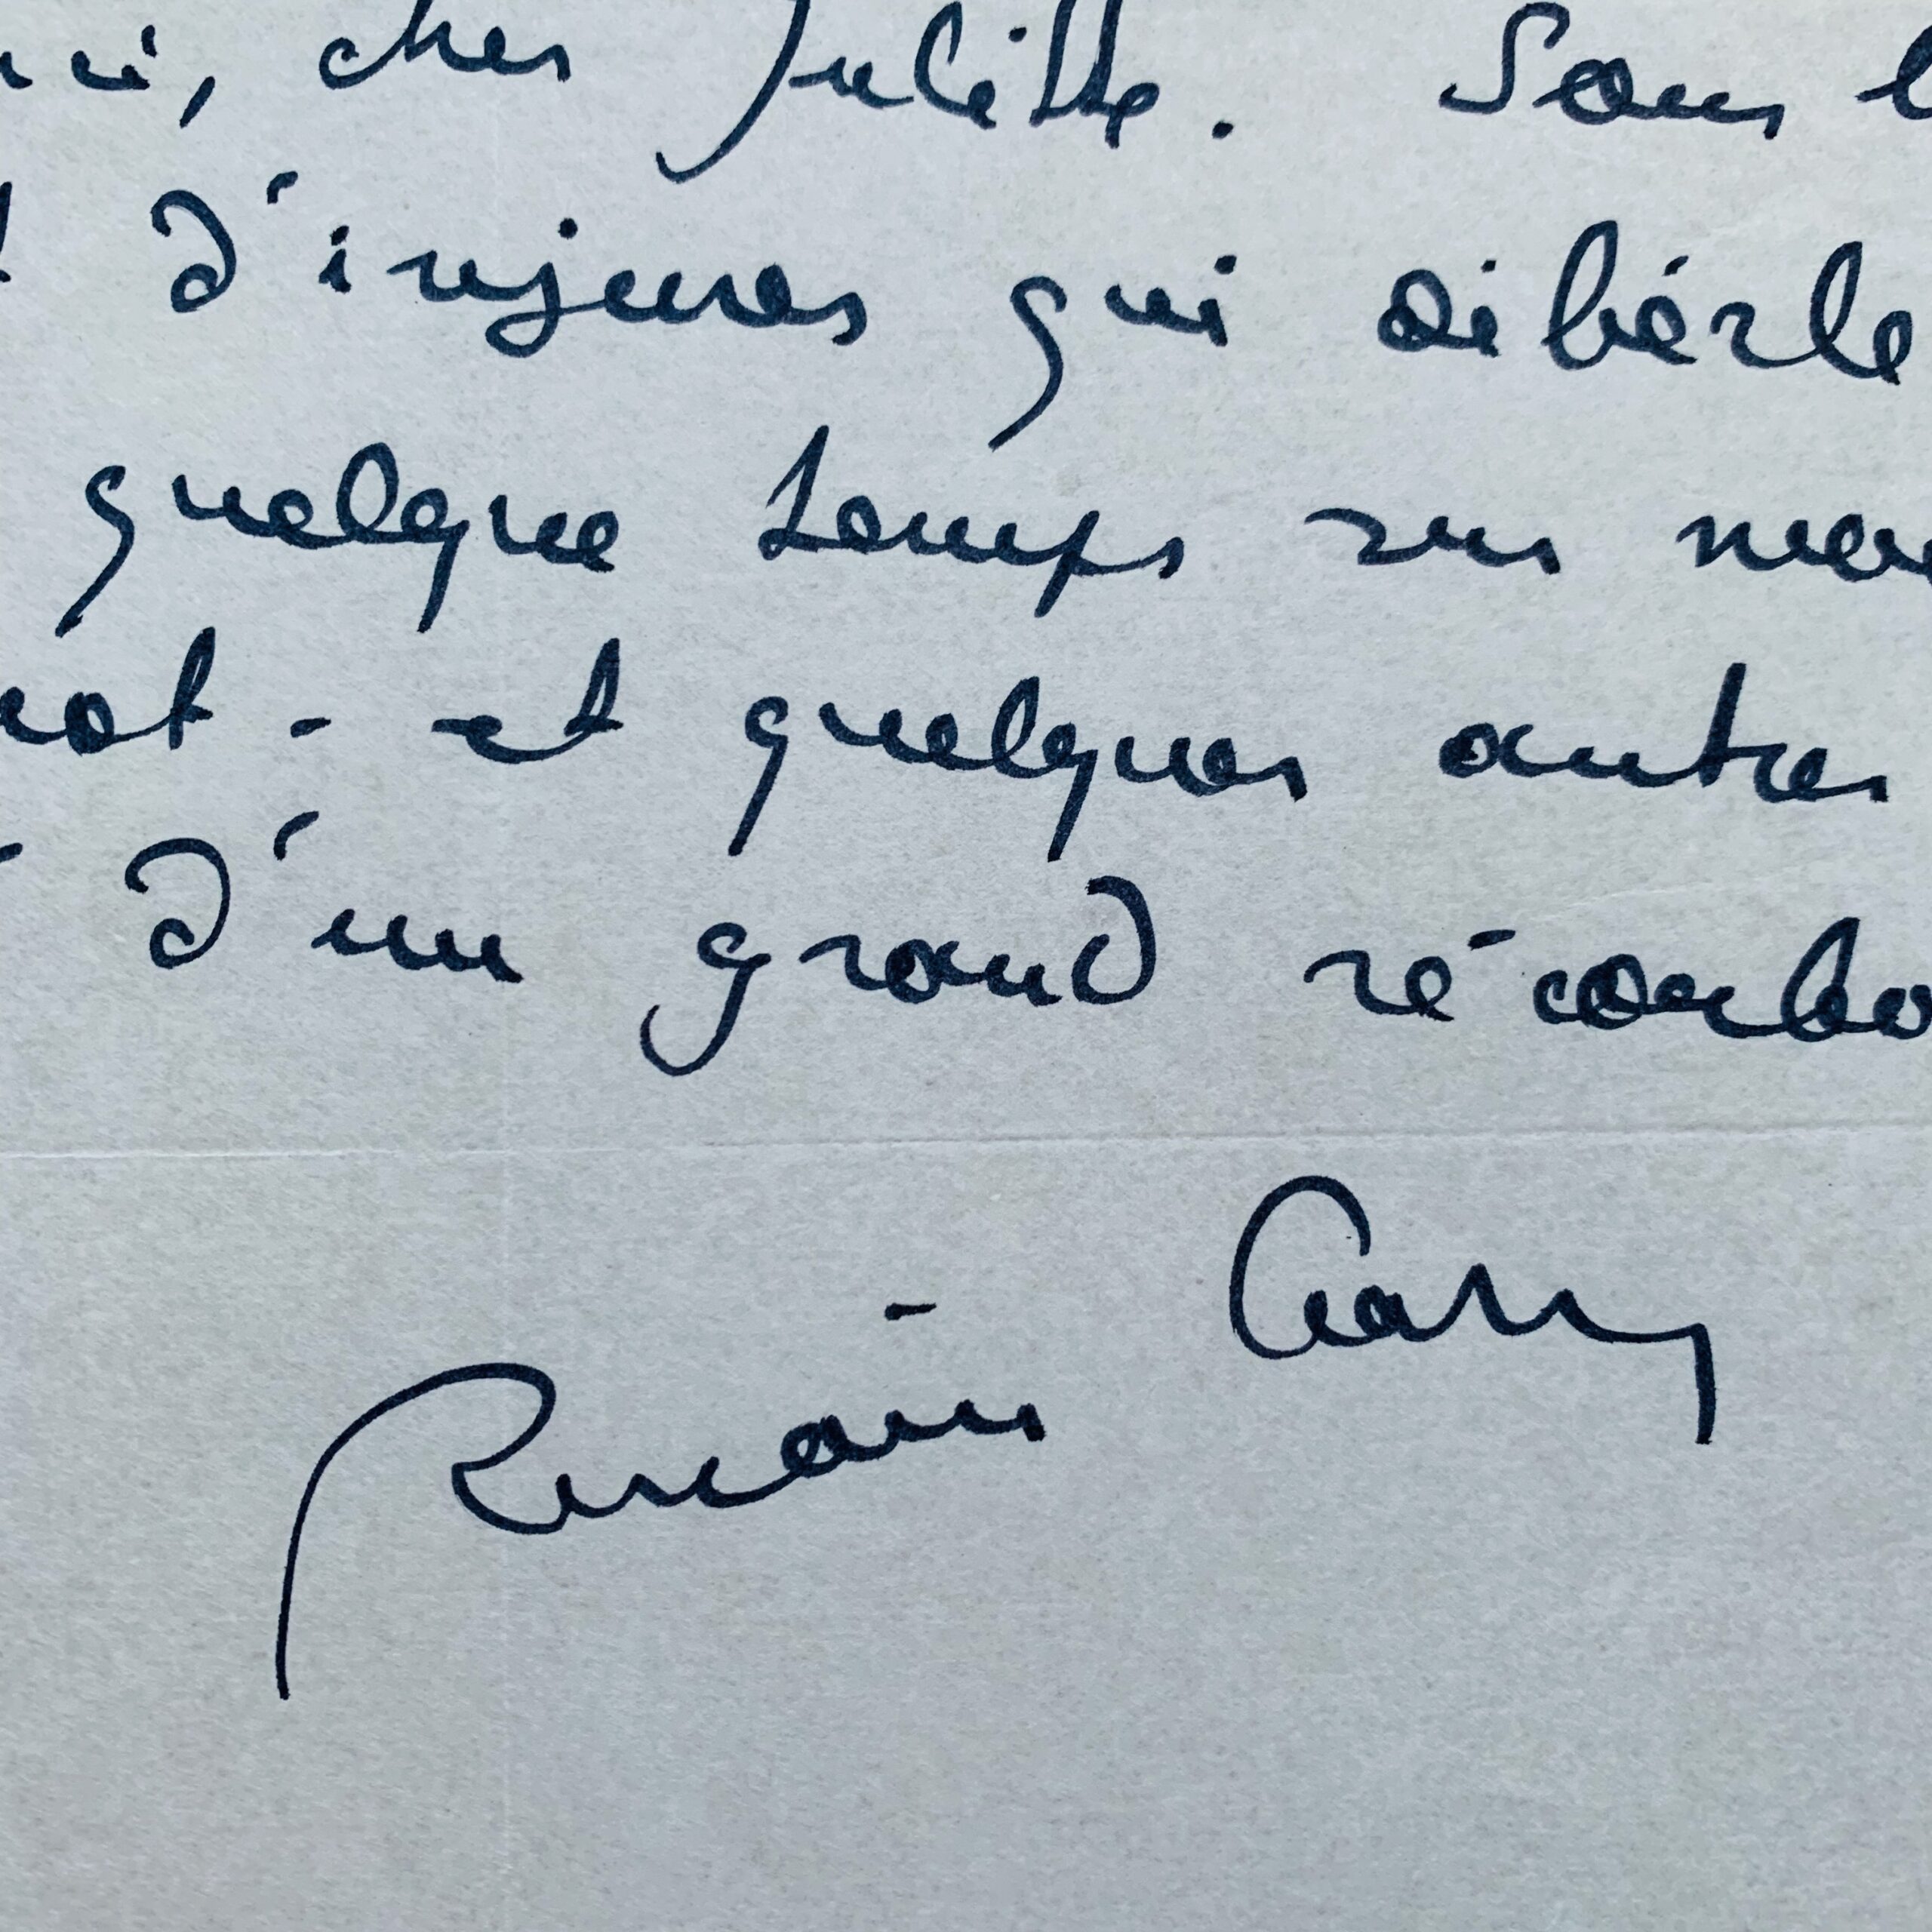 cher Juliette. Sous l
d'injures qui déberle
quelque temps sur mo
mot - et quelques autres
d'un grand réconfo
Romain Gary